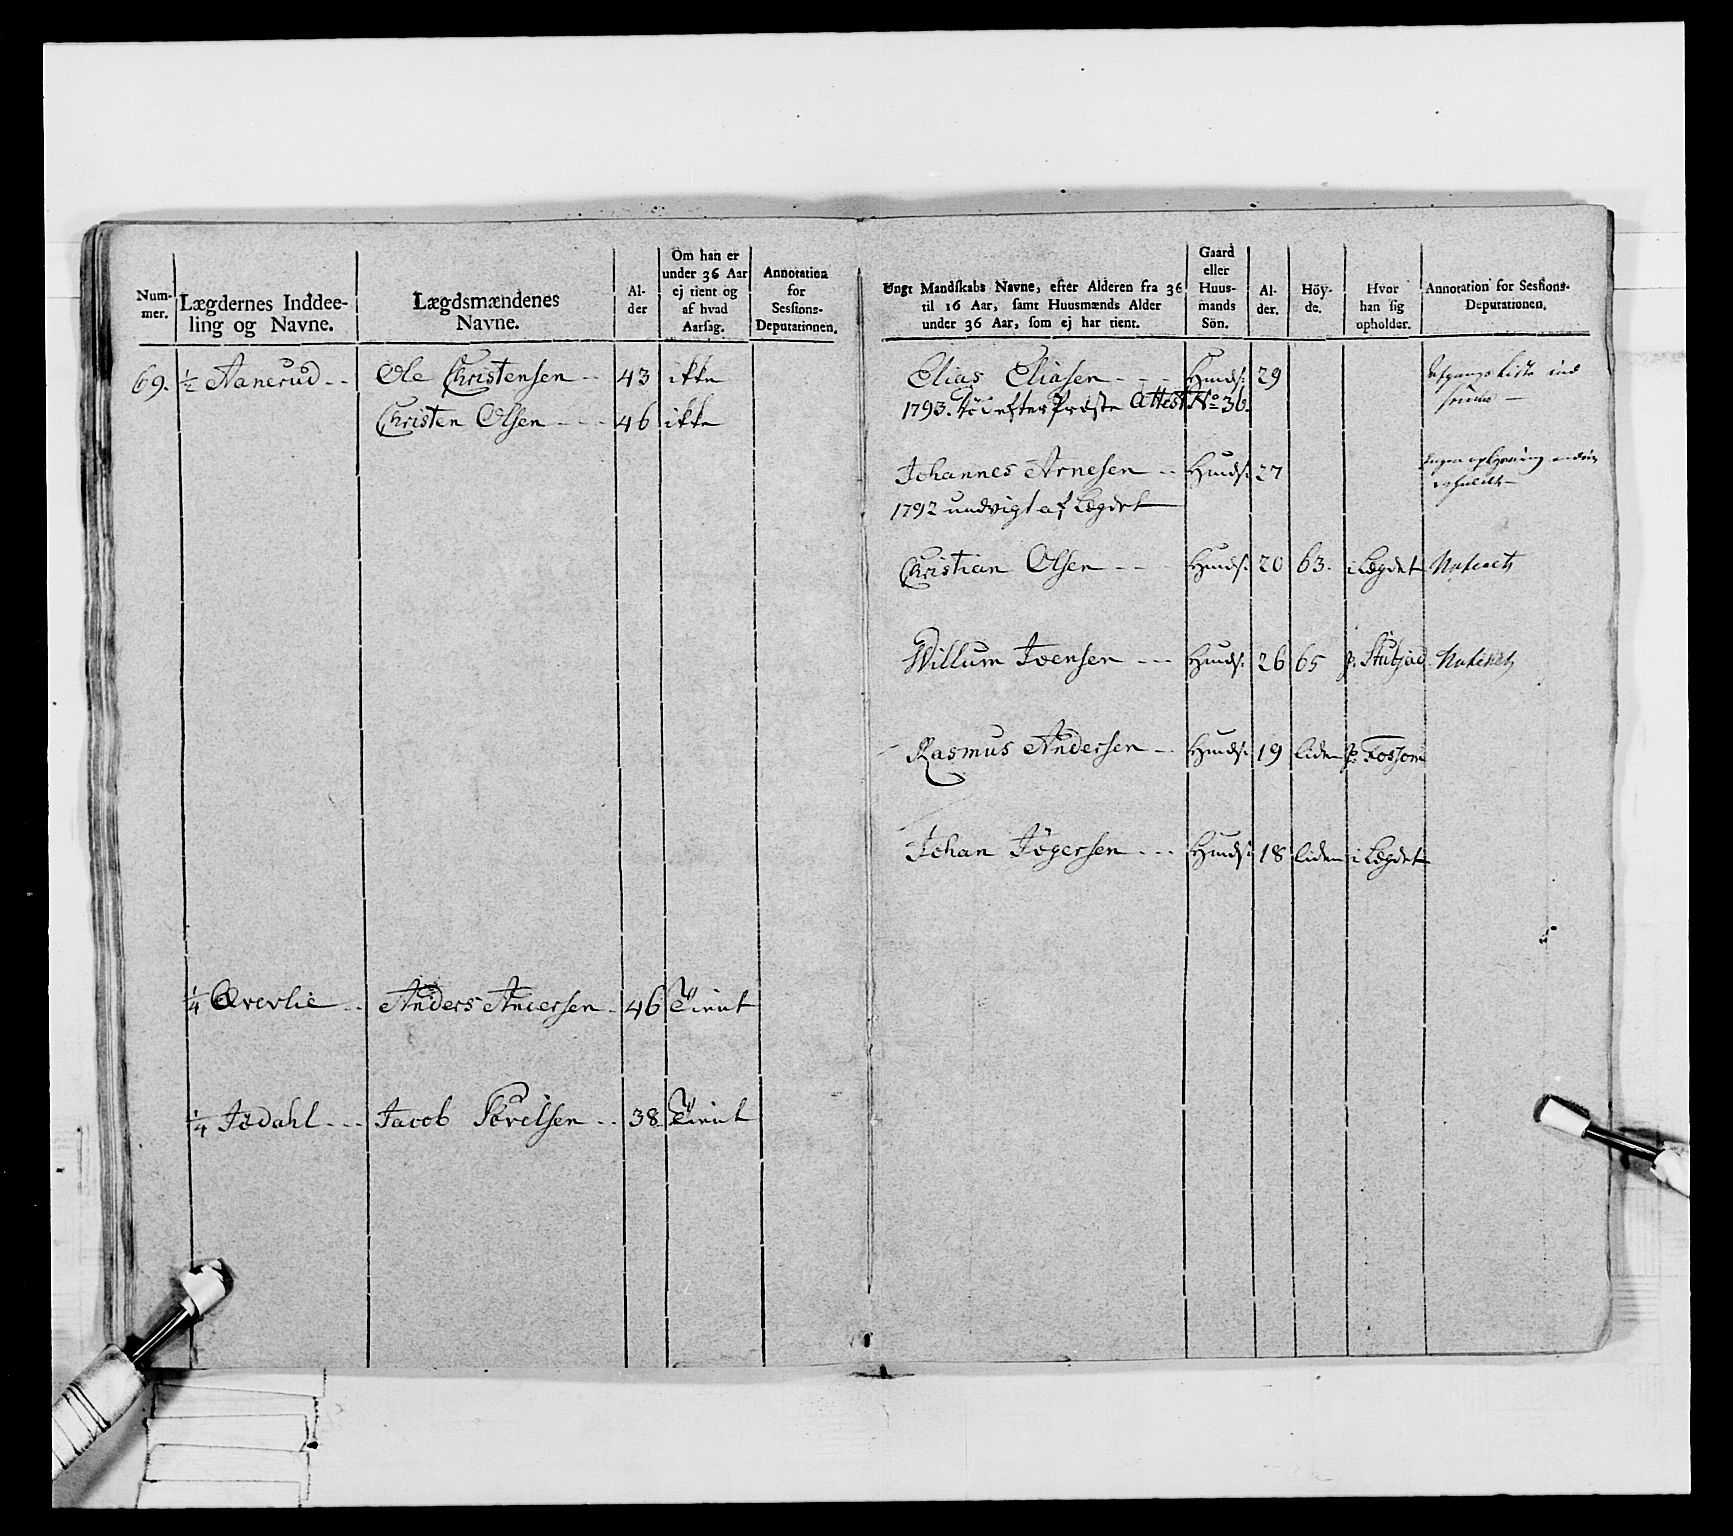 Num-
mer.
Lægdernes Inddee-
ling og Navne.
Lægdsmændenes
Navne.
Al-
der
Om han er
under 36 Aar
ej tient og
af hvad
Aarsag.
Annotation
for
Sessions-
Deputationen.
69. ½ Aanerud -- Ole Christensen -- 43 ikke
Christen Olsen --- 46 ikke
¼ Øverlie -- Anders Andersen - 46 Tient
¼ Jødahl --- Jacob Povelsen -- 38 Tient
Ungt Mandskabs Navne, efter Alderen fra 36
til 16 Aar, samt Huusmænds Alder
under 36 Aar, som ej har tient.
Gaard
eller
Huus-
mands
Sön.
Al-
der.
Höy-
de.
Hvor
han sig
opholder.
Annotation for Sessions-
Deputationen.
Elias Eliasen --- Hmds: 29 Afgangs Liste ind
1793. död efter Præste Attest No 36.
Johannes Arnesen -- Hmds: 27 Ingen oplysning
1792 undvigt af Lægdet
Christian Olsen --- Hmds: 20 63. i Lægdet
Willum Joensen --- Hmds: 26 65
Rasmus Andersen -- Hmds: 19 liden p: Fossom
Johan Jögersen --- Hmds: 18 liden i Lægdet